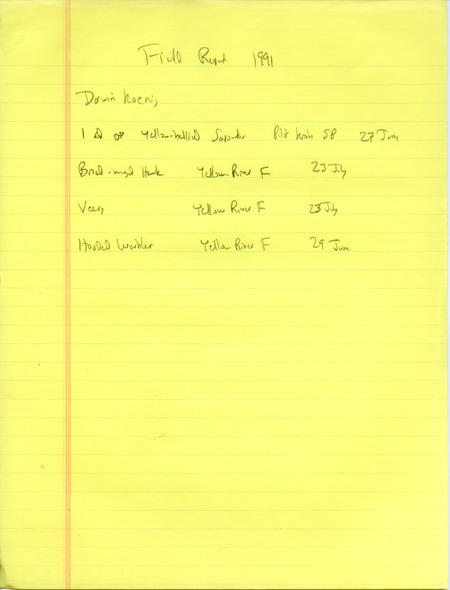 Field Report 1991
Darwin Koenig
1 ad Yellow-bellied Sapsucker Pikes Peak SP 27 June
Broad-winged Hawk Yellow River F 23 July
Veery Yellow River F 23 July
Hooded Warbler Yellow River F 29 June